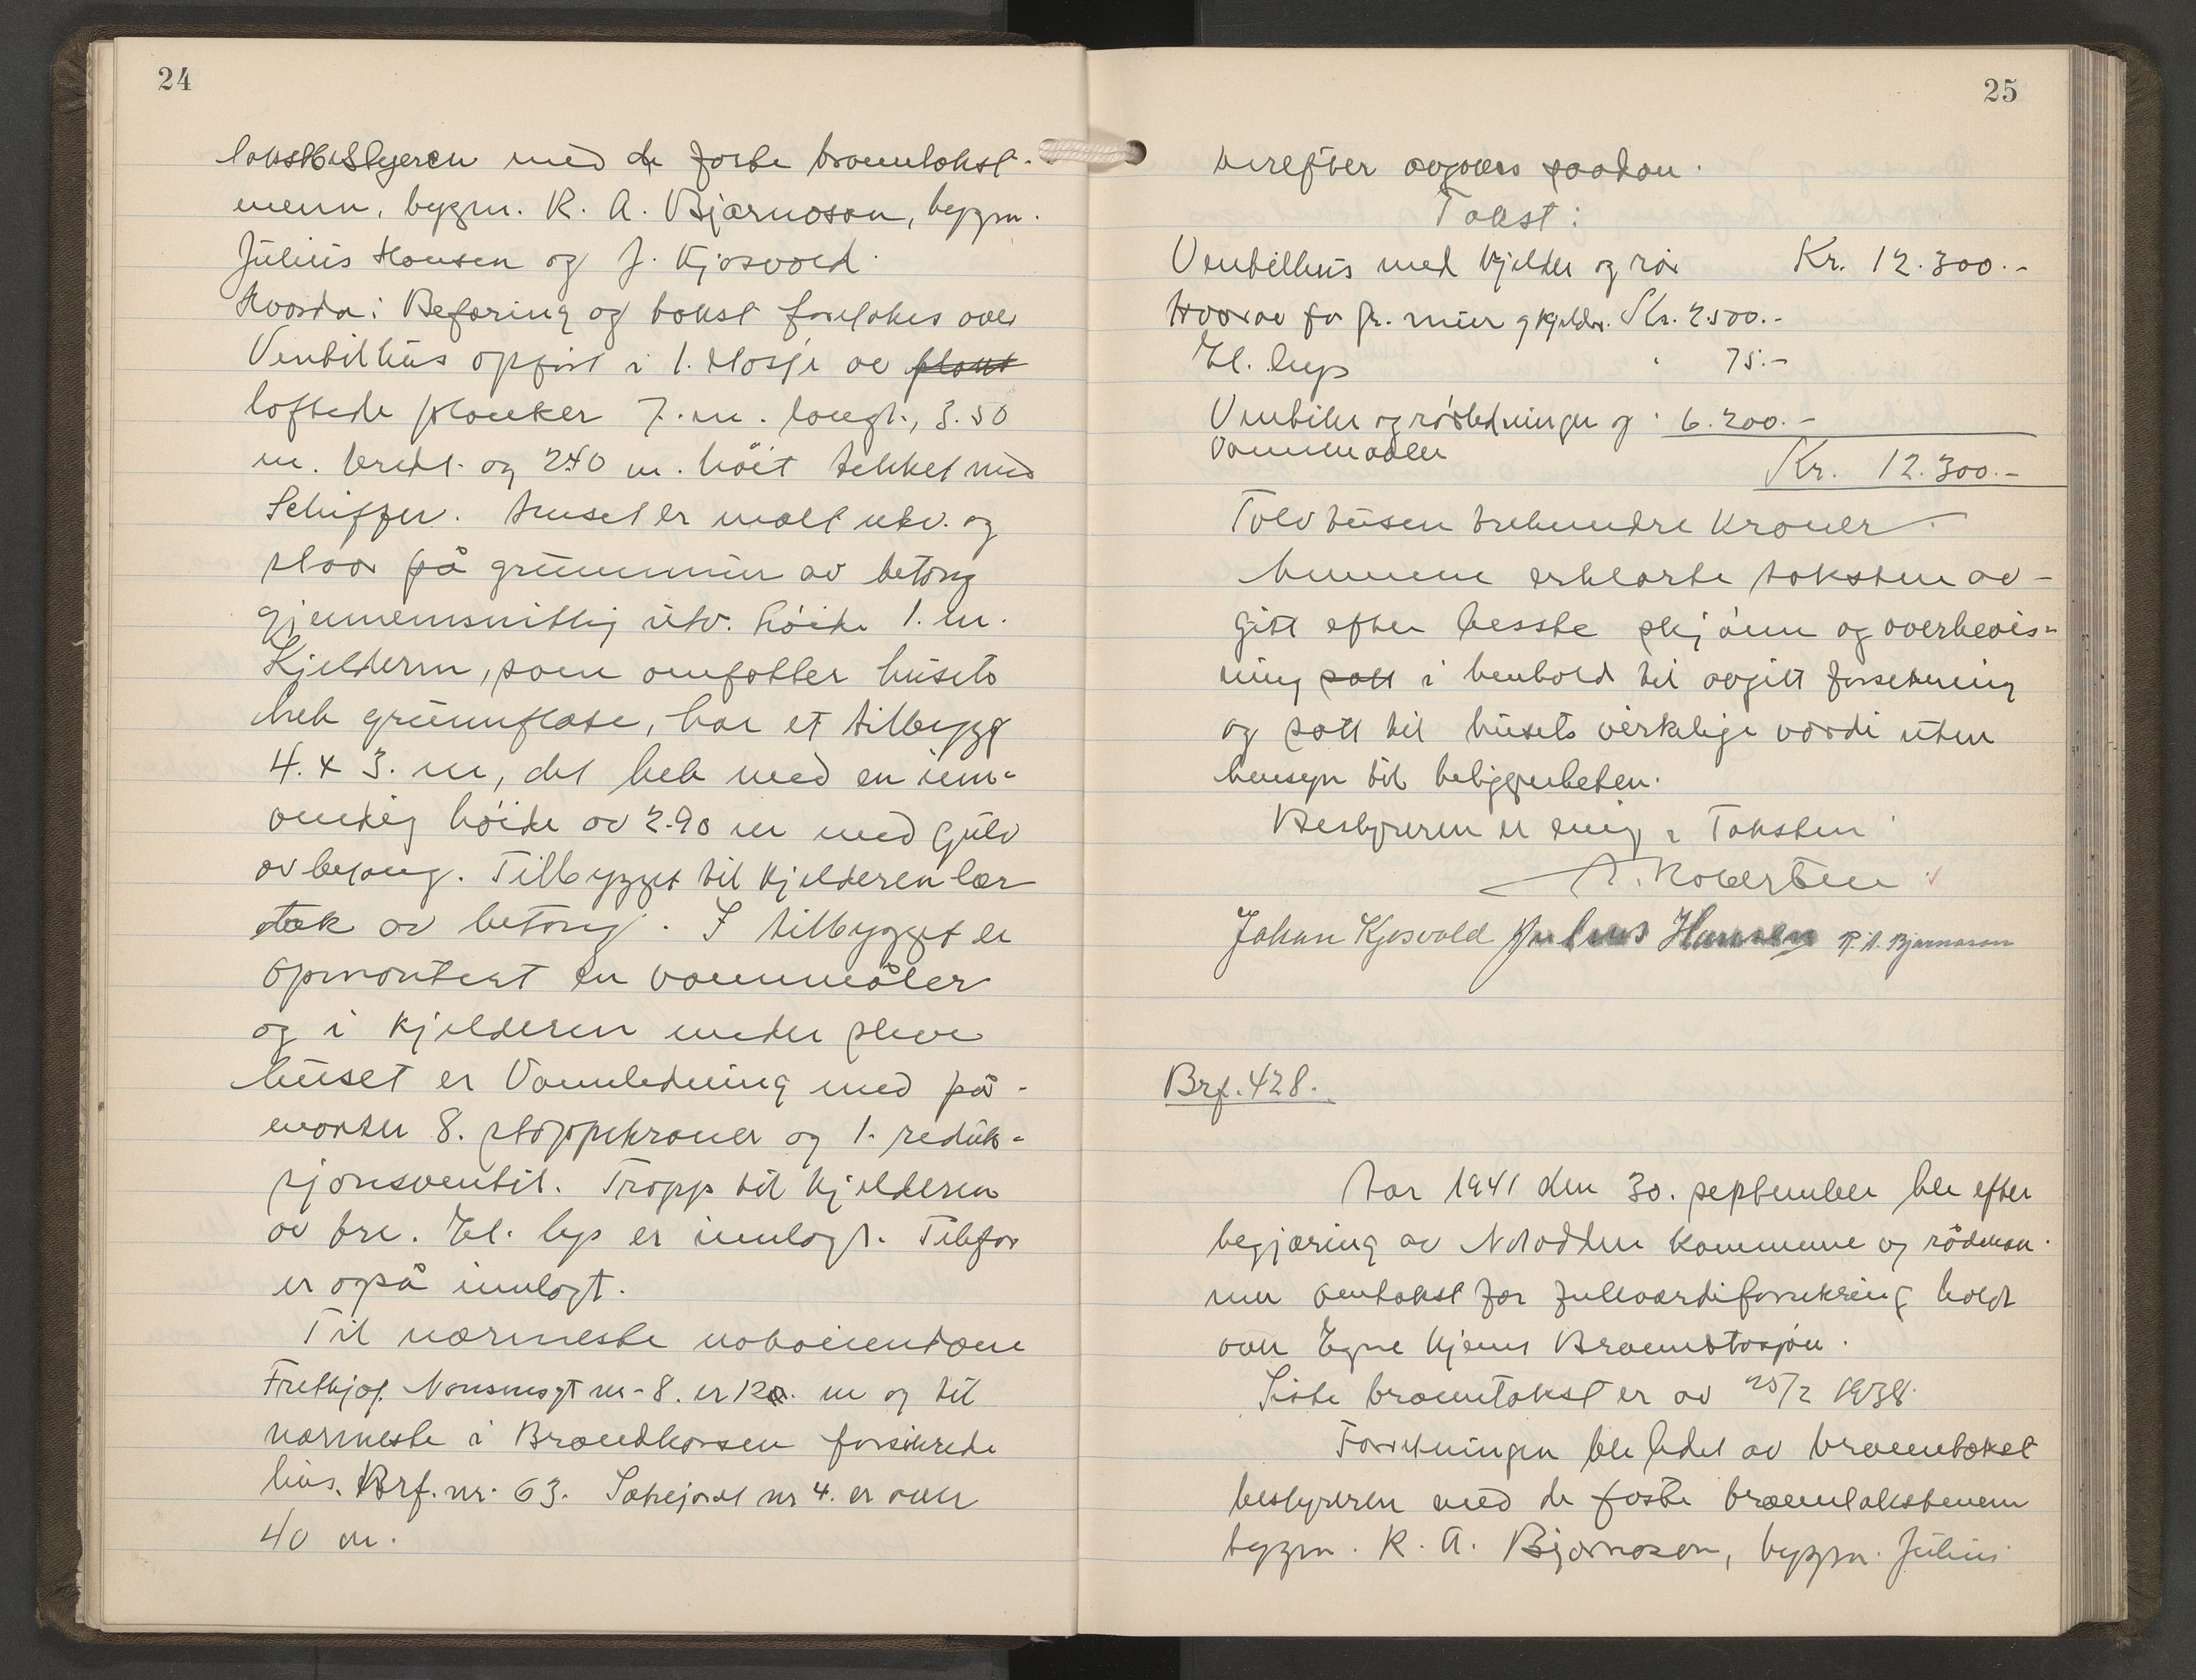 24
takstbestyreren med de faste branntakst-
menn, bygm. R. A. Bjarnason, bygm.
Julius Hansen og J. Kjosvold.
Hvorda: Befaring og takst foretakes over
Ventilhus opført i 1. etasje av plant
laftede planker 7. m. langt, 3.50
m. bredt og 240 m. höit tekket med
Schiffer. Huset er malt utv. og
staar på grunnmur av betong
gjennemsnittlig utv. höide 1. m.
Kjelderen, som omfatter husets
hele grunnflate, har et tilbygg
4. x 3. m, det hele med en inn-
vendig höide av 2.90 m med gulv
av betong. Tilbygget til kjelderen har
tak av betong. I tilbygget er
opmontert en vannmåler
og i kjelderen under selve
huset er Vannledning med på-
monter 8. stoppekraner og 1. reduk-
sjonsventil. Trapp til kjelderen
av tre. El. lys er innlagt. Telefon
er også innlagt.
Til nærmeste naboeiendom
Frithjof Nansensgt nr - 8. er 120. m og til
nærmeste i Brandkassen forsikrede
hus. Brf. nr. 63. Sætrejordet nr 4. er over
40 m.
25
herefter avgaes saadan
Takst:
Ventilhus med kjelder og rör Kr. 12.300.-
Hvorav for gr. mur og kjelder. Kr. 2.500.-
El. lys " 75.-
Ventiler og rörledninger og " 6.200.-
Vannmaaler
Kr. 12.300.-
Tolv tusen trehundre Kroner.
Mennene erklærte taksten av-
gitt efter besste skjönn og overbevis-
ning satt i henhold til avgitt forsetning
og satt til husets virkelige værdi uten
hensyn til beliggenheten.
Bestyreren er enig i Taksten
A. Robersten
Johan Kjosvold Julius Hansen R. A. Bjarnason
Brf. 428.
Aar 1941 den 30. september ble efter
begjæring av Notodden Kommune og rådman-
nen omtakst for fullværdiforsikring holdt
over Egne Hjems Brannstasjon.
Siste branntakst er av 25/2 1938.
Forretningen ble ledet av branntakst
bestyreren med de faste branntakstmenn
bygm. R. A. Bjarnason, bygm. Julius